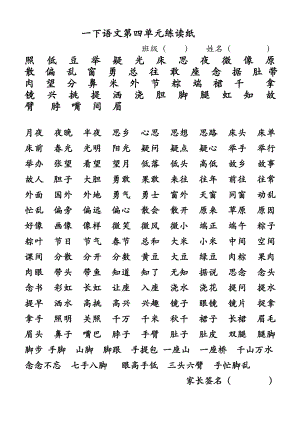 一下语文第四单元练读纸
班级（ ） 姓名（ ）
照 低 豆 举 疑 光 床 思 夜 微 像 原
散 偏 乱 窗 勇 总 往 敢 座 念 据 肚 带
肉 知 间 分 节 米 真 豆 午 端 粽 千 拿
镜 兴 提 趣 插 洒 浇 胆 脚 腿 虹 知 故
臂 脖 嘴 睛 间 眉
月夜 夜晚 半夜 思乡 心思 思想 思路 床头 床单
床前 春光 光明 阳光 疑问 疑点 疑心 举手 举行
举办 张望 看望 望月 低落 低头 高低 故乡 故事
故人 胆子 大胆 勇敢 果敢 敢于 往日 往来 来往
外面 国外 外地 勇气 勇士 窗外 天窗 窗前 动乱
忙乱 偏旁 偏远 偏心 散会 散开 原来 草原 原因
好像 画像 像样 微笑 微风 微小 端正 端午 粽子
粽叶 节日 节气 春节 总和 总是 大米 小米 中间
房间 分米 分别 米饭 空间 豆子 绿豆 肉粽 果肉
肉眼 带头 带鱼 知道 知了 无知 据说 思念 想念
念书 彩虹 长虹 让座 座位 浇水 浇花 提问 提水
提早 洒水 高兴 兴趣 趣味 镜子 眼镜 镜片 拿起
拿手 照明 关照 千万 千米 秋千 裙子 长裙 眉毛
眉头 鼻子 嘴巴 脖子 手臂 肚子 肚皮 双腿 腿脚
脚步 手脚 山脚 脚跟 手提包 一座山 一座桥 千山万水
念念不忘 七手八脚 眼高手低 三头六臂 手忙脚乱
家长签名（ ）